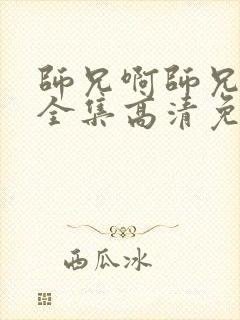 師兄啊師兄
全集高清免
西瓜冰